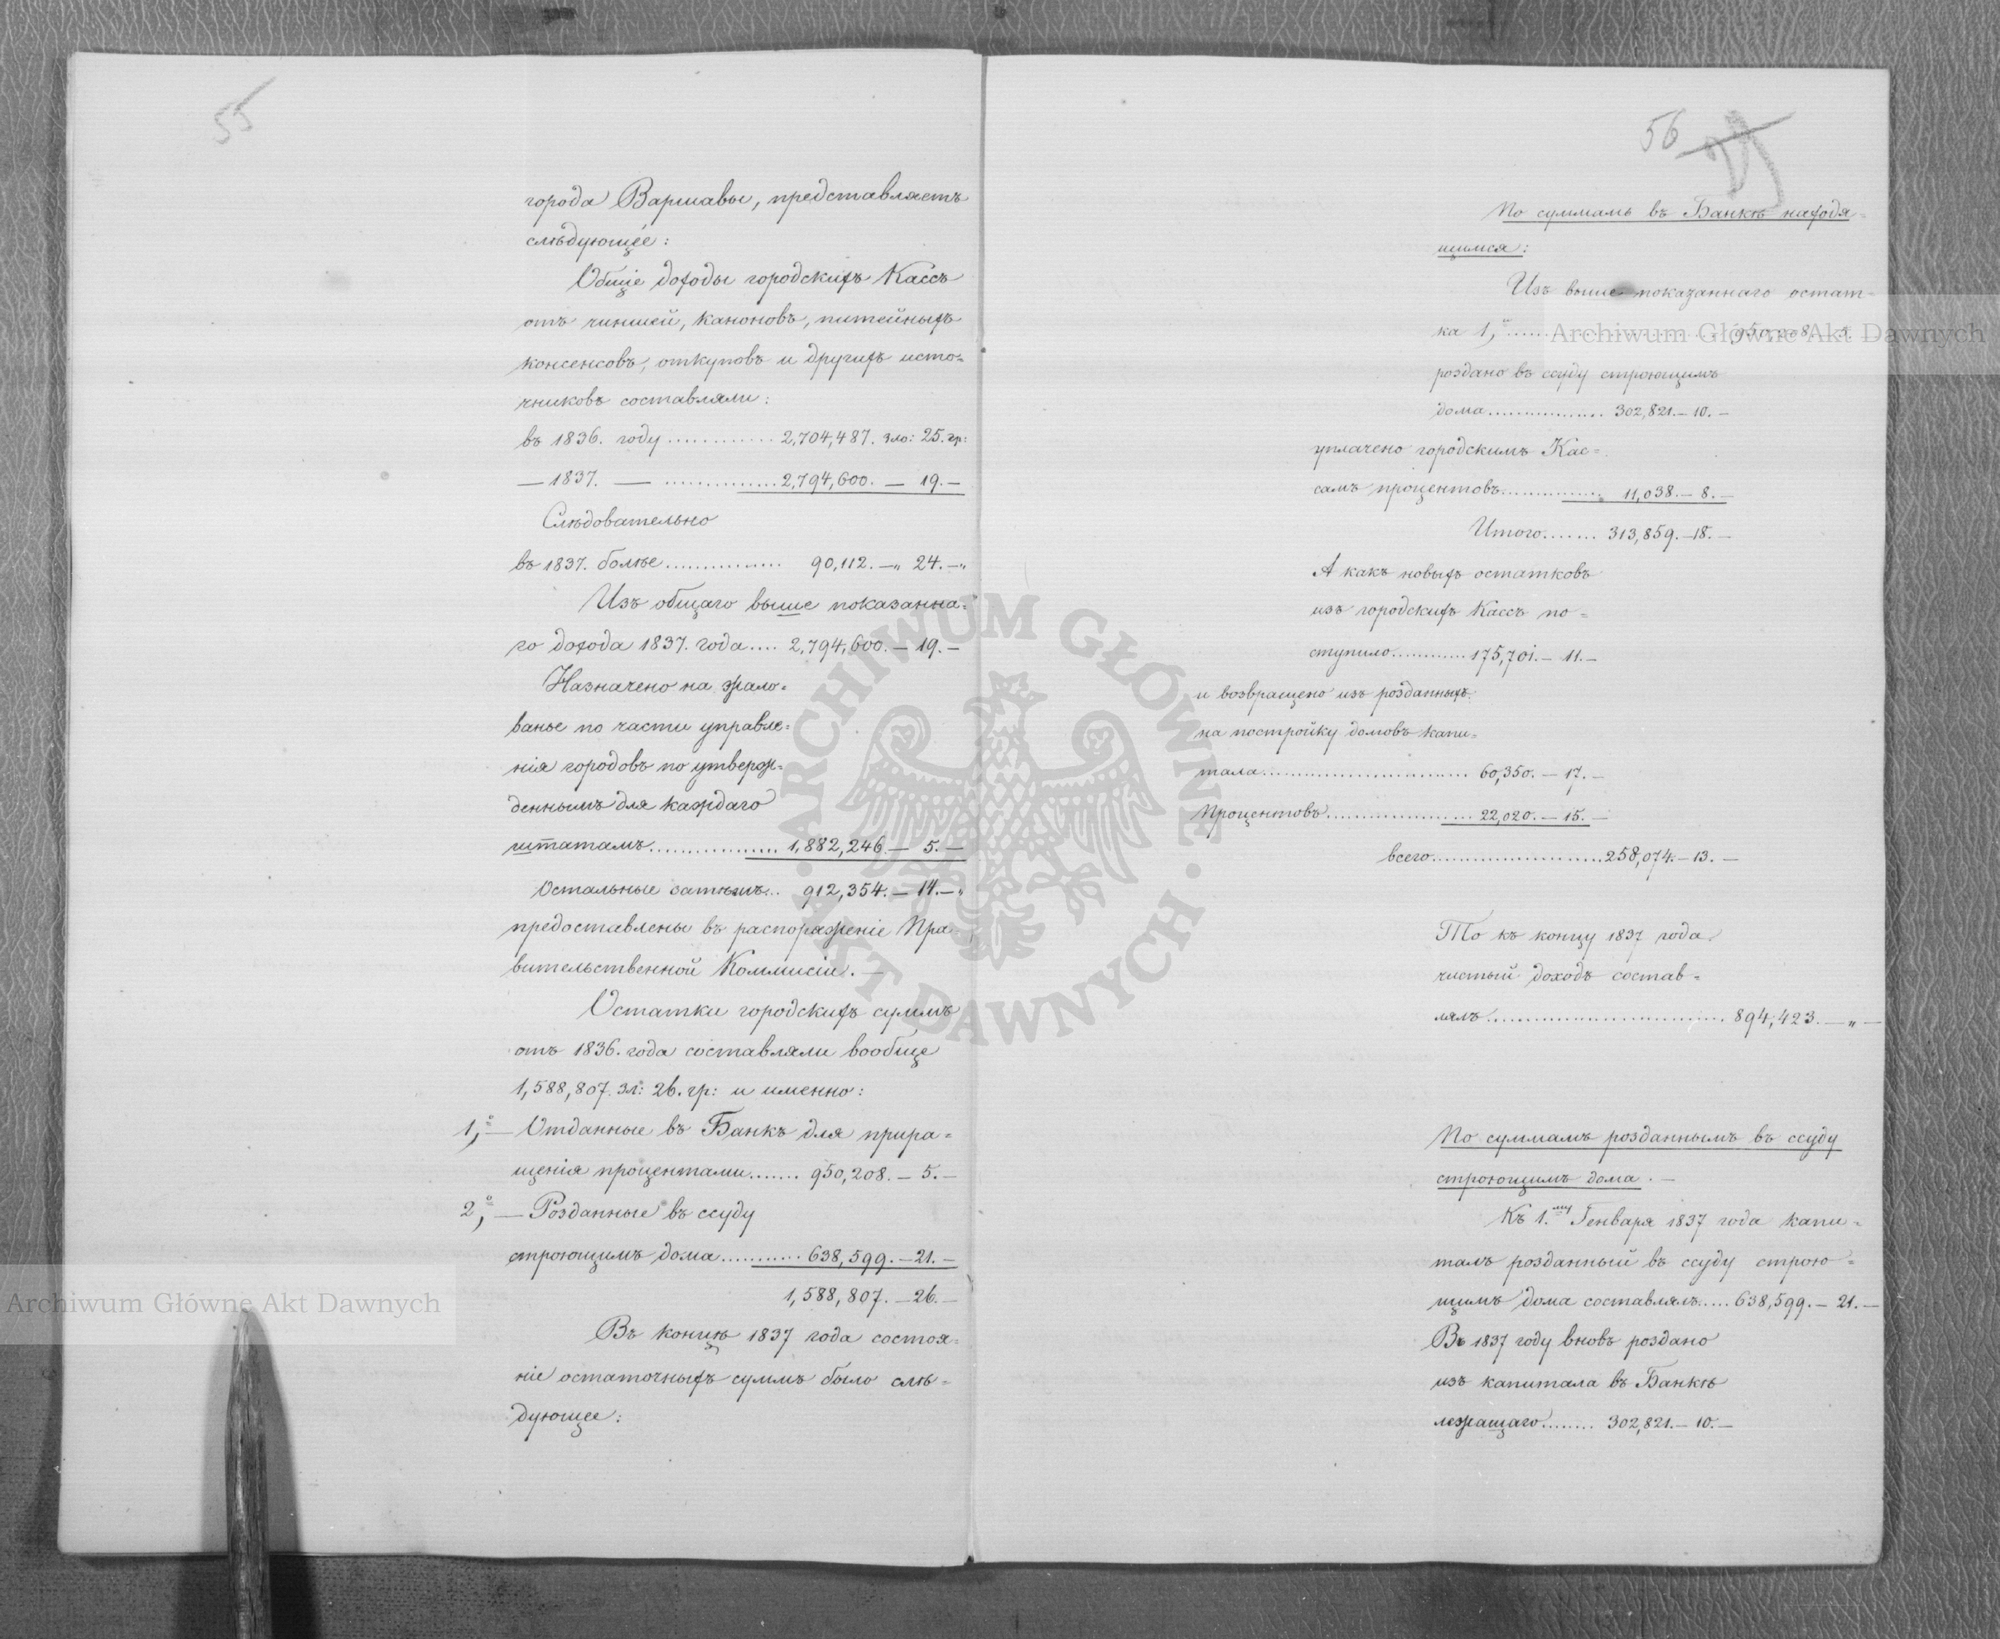 55
города Варшавы, представляетъ
слѣдующее:
Общіе доходы городскихъ Кассъ
отъ чиншей, каноновъ, питейныхъ
консенсовъ, откуповъ и другихъ исто=
чниковъ составляли:
въ 1836. году ............ 2,704,487. зло: 25. гр:
— 1837. — .............. 2,794,600. — 19. —
Слѣдовательно
въ 1837. болѣе ............... 90,112. —„ 24. —„
Изъ общаго выше показанна=
го дохода 1837. года .... 2,794,600. — 19. —
Назначено на жало=
ванье по части управле=
нія городовъ по утверж=
деннымъ для каждаго
штатамъ ................. 1,882,246. — 5. —
Остальные затѣмъ... 912,354. — 14. —„
предоставлены въ распоряженіе Пра=
вительственной Коммисіи. —
Остатки городскихъ суммъ
отъ 1836. года составляли вообще
1,588,807. зл: 26. гр: и именно:
1,° — Отданные въ Банкъ для прира=
щенія процентами ....... 950,208. — 5. —
2,° — Розданные въ ссуду
строющимъ дома ........... 638,599. — 21. —
1,588,807. — 26. —
Въ концѣ 1837 года состоя=
ніе остаточныхъ суммъ было слѣ=
дующее:
56
По суммамъ въ Банкѣ находя=
щимся:
Изъ выше показаннаго остат=
ка 1,° .......... 950,208 — 5.
роздано въ ссуду строющимъ
дома ................ 302,821. — 10. —
уплачено городскимъ Кас=
самъ процентовъ .............. 11,038. — 8. —
Итого ....... 313,859. — 18. —
А какъ новыхъ остатковъ
изъ городскихъ Кассъ по=
ступило ............ 175,701. — 11. —
и возвращено изъ розданныхъ
на постройку домовъ капи=
тала ............................ 60,350. — 17. —
Процентовъ .................... 22,020. — 15. —
всего ....................... 258,074. — 13. —
То къ концу 1837 года
чистый доходъ состав=
лялъ ............................ 894,423. — „ —
По суммамъ розданнымъ въ ссуду
строющимъ дома. —
Къ 1.му Генваря 1837 года капи=
талъ розданный въ ссуду строю=
щимъ дома составлялъ ..... 638,599. — 21. —
Въ 1837 году вновь роздано
изъ капитала въ Банкѣ
лежащаго ........ 302,821. — 10. —
Archiwum Główne Akt Dawnych
Archiwum Główne Akt Dawnych
ARCHIWUM GŁÓWNE · AKT DAWNYCH ·